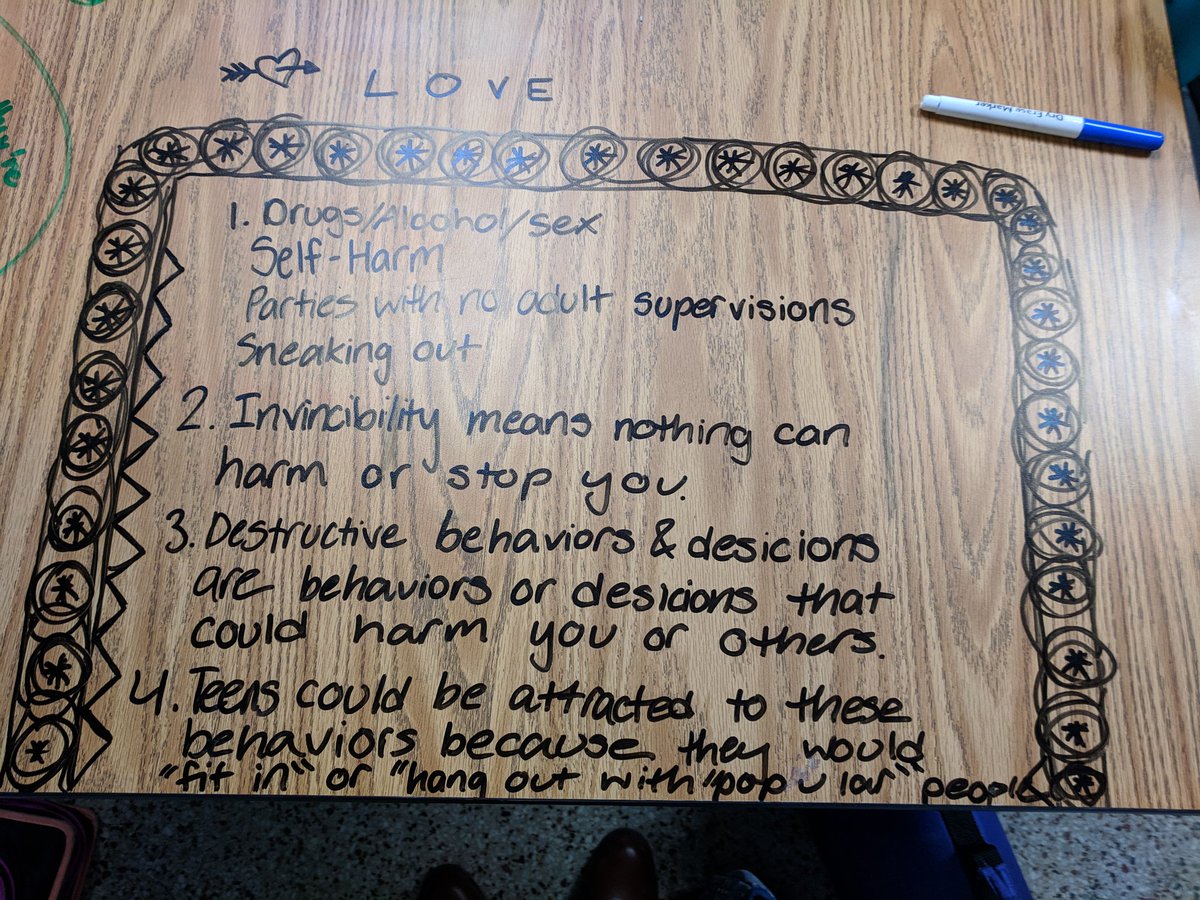 LOVE
Dry Erase Marker
1. Drugs/Alcohol/sex
Self-Harm
Parties with no adult supervisions
Sneaking out
2. Invincibility means nothing can
harm or stop you.
3. Destructive behaviors & desicions
are behaviors or desicions that
could harm you or others.
4. Teens could be attracted to these
behaviors because they would
"fit in" or "hang out with "popular" people